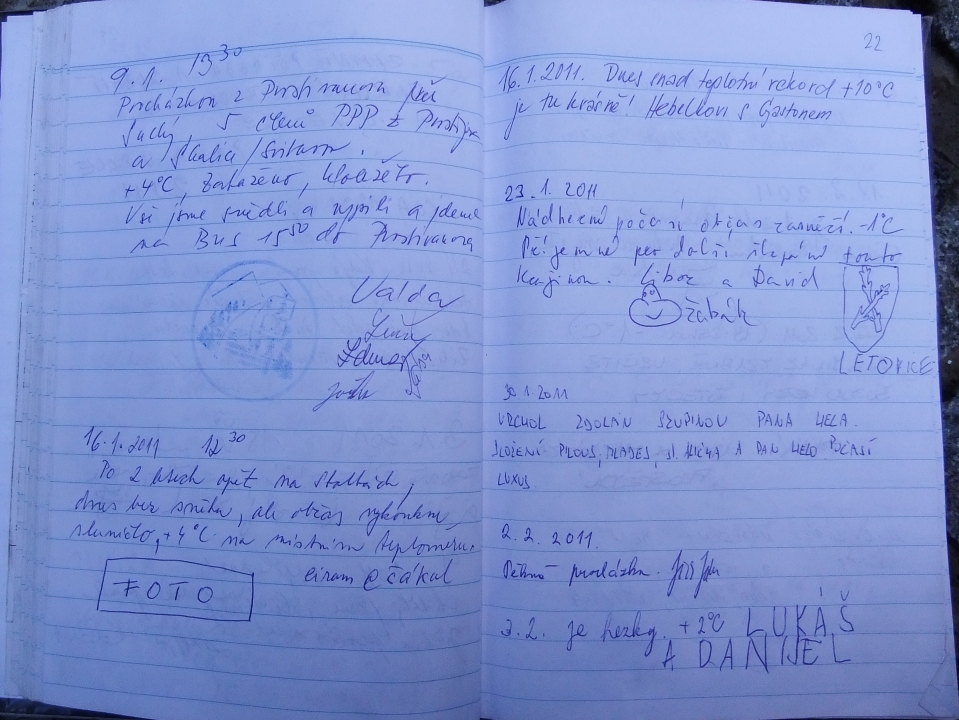 9.1. 13³⁰
Procházkou z Prostivanova přes
Suchý, 5 členů PPP z
a Skalia/Svitavou.
+4°C, zataženo,
Vši jsme snědli a vypili a jdeme
na Bus 15⁵⁰ do Prostivanova
Valda
Zdena
16.1.2011 12³⁰
Po 2 letech opět na
dnes bez sněhu, ale občas vykoukne
sluníčko, +4°C na místním teploměru.
eiram @ čákal
FOTO
22
16.1.2011. Dnes snad teplotní rekord +10°C
je tu krásně! Hebelkovi s Gastonem
23.1.2011
Nádherné počasí občas zasněží. -1°C
Příjemné pro další šlapání touto
Krajinou. Libor a David
žabák
LETOVICE
30.1.2011
VRCHOL ZDOLÁN SKUPINOU PANA HELA.
SLOŽENÍ PILOUS, MLADES, A DAN HELO POČASÍ
LUXUS.
2.2.2011.
Pěkná procházka.
3.2. je hezky. +2°C LUKÁŠ
A DANIJEL